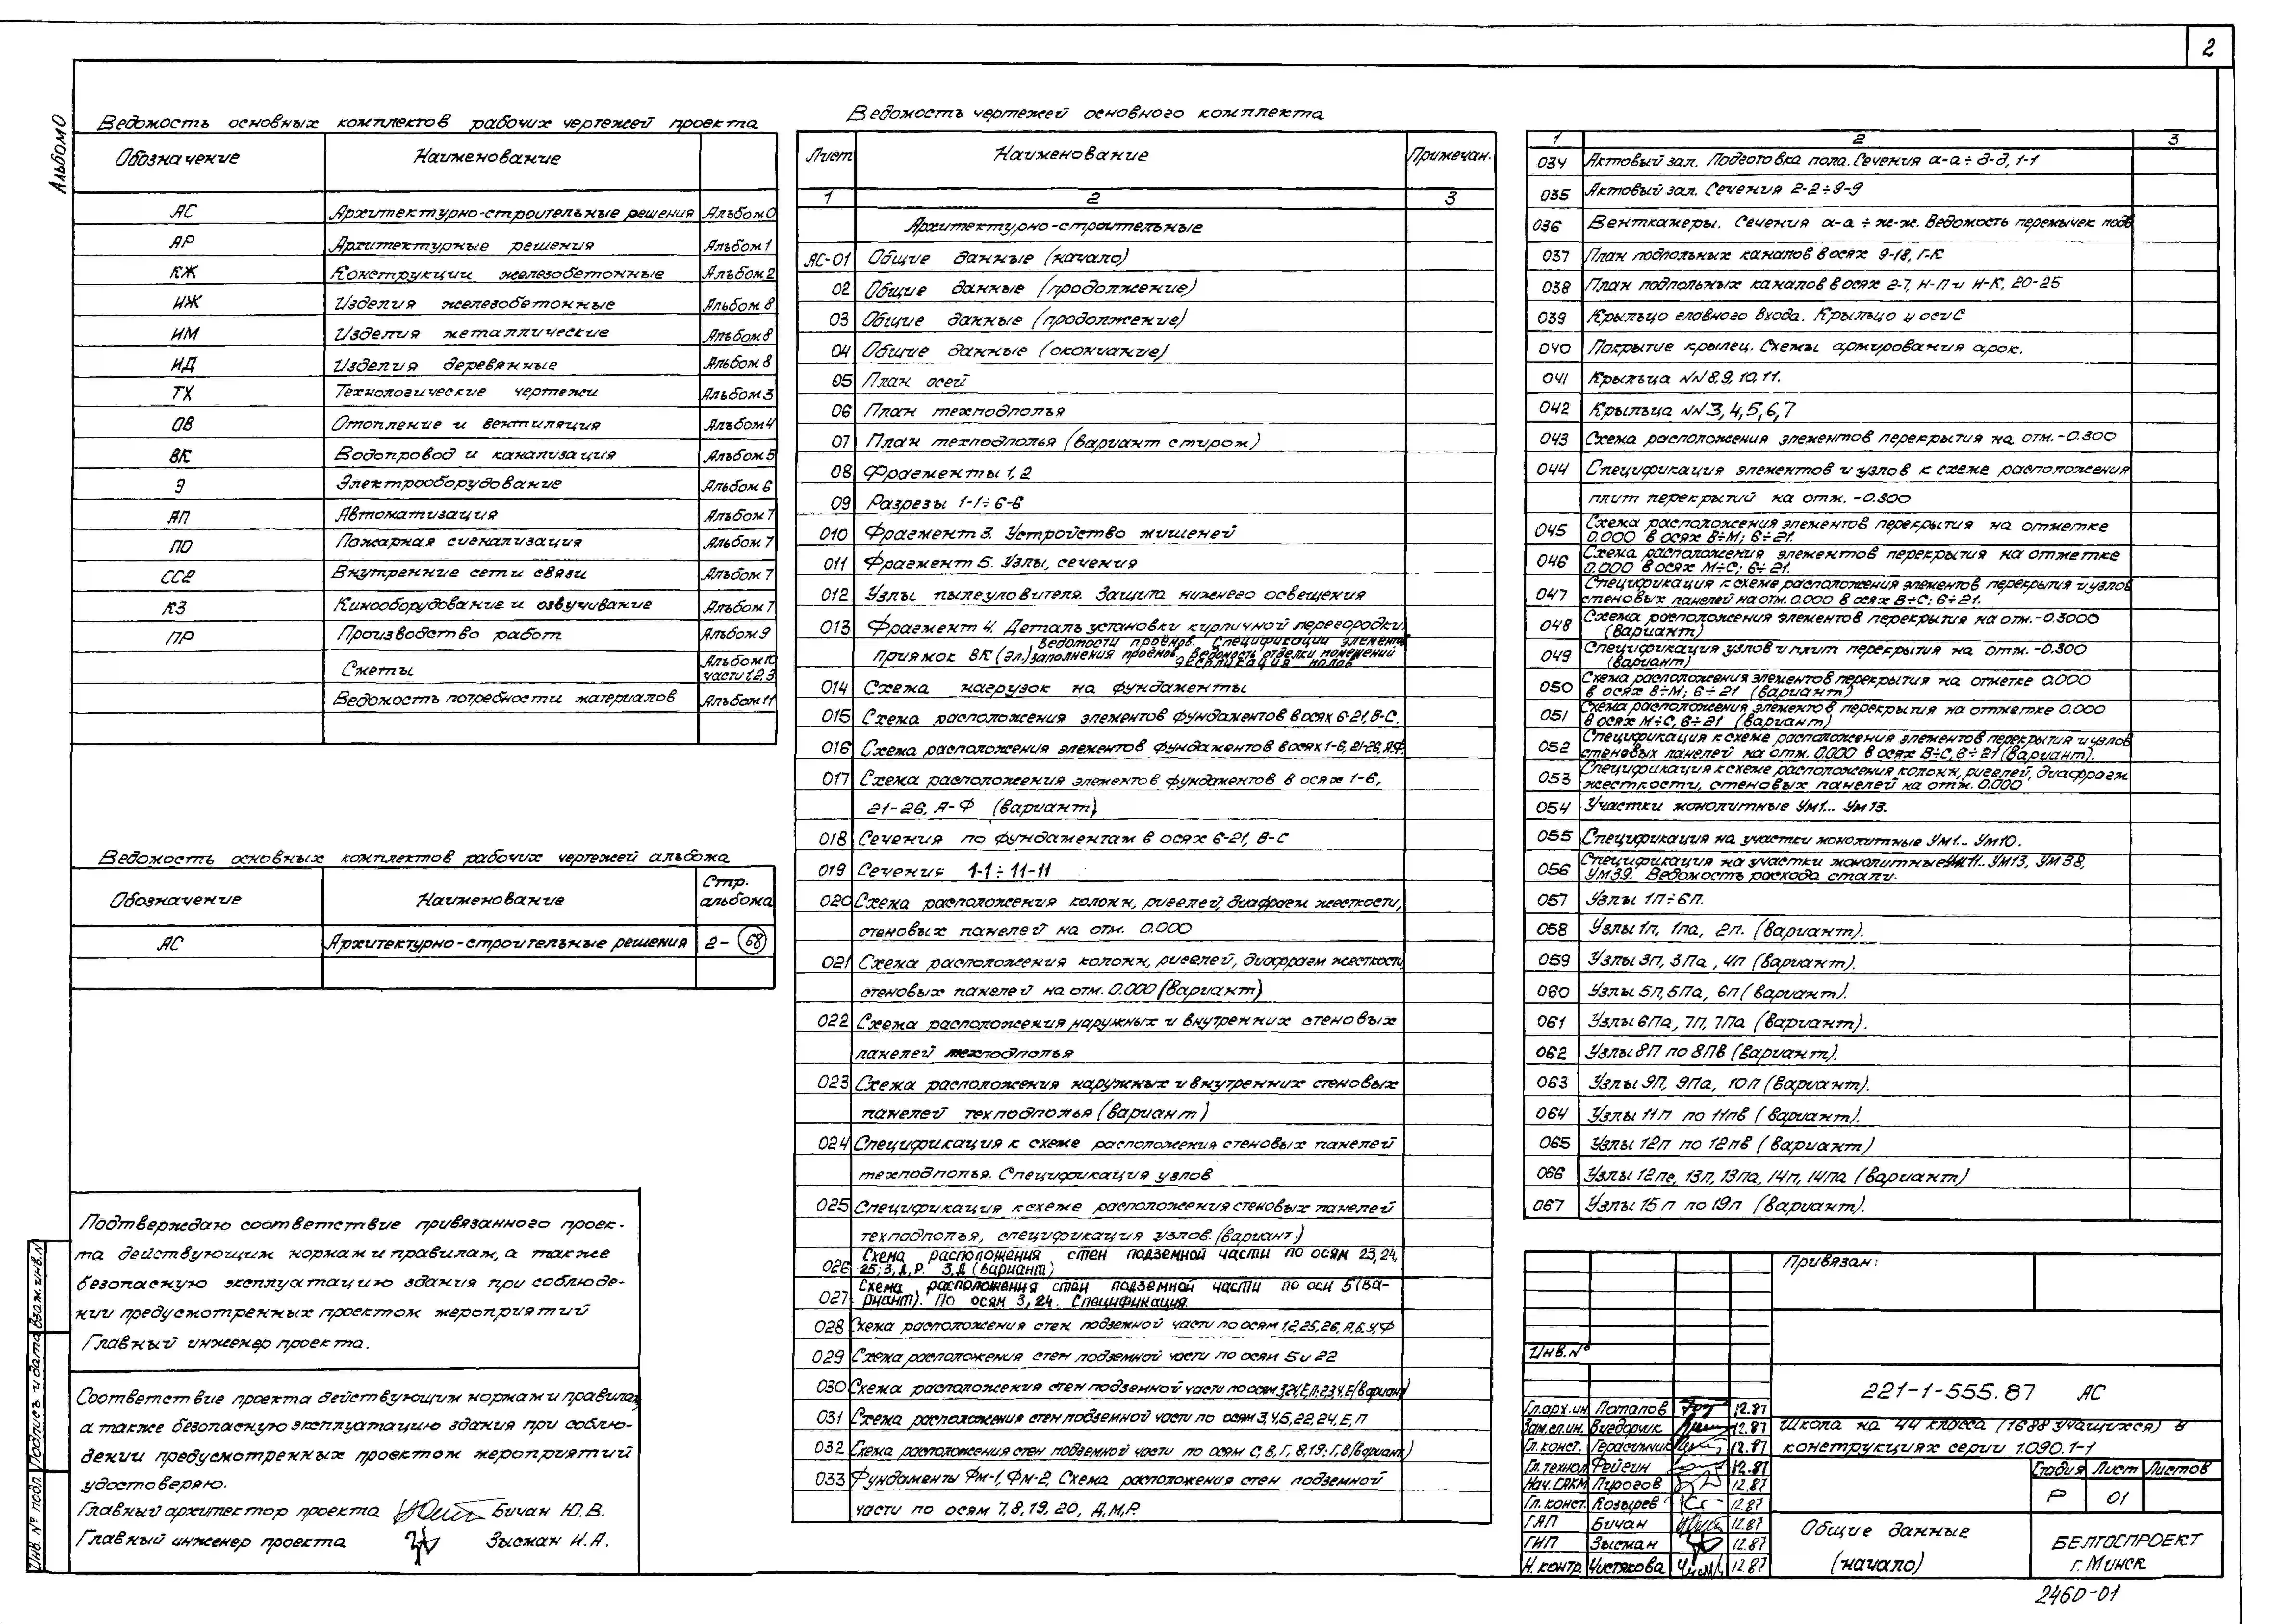 2
Альбом 0
Ведомость основных комплектов рабочих чертежей проекта
Обозначение Наименование
АС Архитектурно-строительные решения Альбом 0
АР Архитектурные решения Альбом 1
КЖ Конструкции железобетонные Альбом 2
ИЖ Изделия железобетонные Альбом 8
ИМ Изделия металлические Альбом 8
ИД Изделия деревянные Альбом 8
ТХ Технологические чертежи Альбом 3
ОВ Отопление и вентиляция Альбом 4
ВК Водопровод и канализация Альбом 5
Э Электрооборудование Альбом 6
АП Автоматизация Альбом 7
ПО Пожарная сигнализация Альбом 7
СС2 Внутренние сети связи Альбом 7
КЗ Кинооборудование и озвучивание Альбом 7
ПР Производство работ Альбом 9
Сметы Альбом 10 части 1,2,3
Ведомость потребности материалов Альбом 11
Ведомость основных комплектов рабочих чертежей альбома
Обозначение Наименование Стр. альбома
АС Архитектурно-строительные решения 2-68
Подтверждаю соответствие привязанного проек-
та действующим нормам и правилам, а также
безопасную эксплуатацию здания при соблюде-
нии предусмотренных проектом мероприятий
Главный инженер проекта.
Соответствие проекта действующим нормам и правилам,
а также безопасную эксплуатацию здания при соблю-
дении предусмотренных проектом мероприятий
удостоверяю.
Главный архитектор проекта Бичан Ю.В.
Главный инженер проекта Зысман И.А.
Инв. № подл. Подпись и дата Взам. инв. N
Ведомость чертежей основного комплекта
Лист Наименование Примечан.
1 2 3
Архитектурно-строительные
АС-01 Общие данные (начало)
02 Общие данные (продолжение)
03 Общие данные (продолжение)
04 Общие данные (окончание)
05 План осей
06 План техподполья
07 План техподполья (вариант с тиром)
08 Фрагменты 1, 2
09 Разрезы 1-1÷6-6
010 Фрагмент 3. Устройство мишеней
011 Фрагмент 5. Узлы, сечения
012 Узлы пылеуловителя. Защита нижнего освещения
013 Фрагмент 4. Деталь установки кирпичной перегородки.
Приямок ВК (эл.) Ведомости проёмов. Спецификации элементов
заполнения проёмов. Ведомость отделки помещений
Экспликация полов
014 Схема нагрузок на фундаменты
015 Схема расположения элементов фундаментов в осях 6-21, В-С.
016 Схема расположения элементов фундаментов в осях 1-6, 21-26, А-Ф.
017 Схема расположения элементов фундаментов в осях 1-6,
21-26, А-Ф (вариант)
018 Сечения по фундаментам в осях 6-21, В-С
019 Сечения 1-1÷11-11
020 Схема расположения колонн, ригелей, диафрагм жесткости,
стеновых панелей на отм. 0.000
021 Схема расположения колонн, ригелей, диафрагм жесткости,
стеновых панелей на отм. 0.000 (вариант)
022 Схема расположения наружных и внутренних стеновых
панелей техподполья
023 Схема расположения наружных и внутренних стеновых
панелей техподполья (вариант)
024 Спецификация к схеме расположения стеновых панелей
техподполья. Спецификация узлов
025 Спецификация к схеме расположения стеновых панелей
техподполья, спецификация узлов. (вариант)
026 Схема расположения стен подземной части по осям 23,24,
25; 3, Д, Р. 3, Д (вариант)
027 Схема расположения стен подземной части по оси 5 (ва-
риант). По осям 3, 24. Спецификация.
028 Схема расположения стен подземной части по осям 1,2,25,26, А,Б,У,Ф
029 Схема расположения стен подземной части по осям 5 и 22
030 Схема расположения стен подземной части по осям (вариант)
031 Схема расположения стен подземной части по осям 3,4,5,22,24, Е, П
032 Схема расположения стен подземной части по осям С, В, Г, 8,19; Г, 8 (вариант)
033 Фундаменты Фм-1, Фм-2. Схема расположения стен подземной
части по осям 7, 8, 19, 20, Д, М, Р.
1 2 3
034 Актовый зал. Подготовка пола. Сечения а-а ÷ д-д, 1-1
035 Актовый зал. Сечения 2-2÷9-9
036 Венткамеры. Сечения а-а ÷ ж-ж. Ведомость перемычек подв
037 План подпольных каналов в осях 9-18, Г-К
038 План подпольных каналов в осях 2-7, Н-П и Н-К, 20-25
039 Крыльцо главного входа. Крыльцо у оси С
040 Покрытие крылец. Схемы армирования арок.
041 Крыльца NN 8, 9, 10, 11.
042 Крыльца NN 3, 4, 5, 6, 7
043 Схема расположения элементов перекрытия на отм. -0.300
044 Спецификация элементов и узлов к схеме расположения
плит перекрытий на отм. -0.300
045 Схема расположения элементов перекрытия на отметке
0.000 в осях В÷М; 6÷21.
046 Схема расположения элементов перекрытия на отметке
0.000 в осях М÷С; 6÷21.
047 Спецификация к схеме расположения элементов перекрытия и узлов
стеновых панелей на отм. 0.000 в осях В÷С; 6÷21.
048 Схема расположения элементов перекрытия на отм. -0.3000
(вариант)
049 Спецификация узлов и плит перекрытия на отм. -0.300
(вариант)
050 Схема расположения элементов перекрытия на отметке 0.000
в осях В÷М; 6÷21 (вариант)
051 Схема расположения элементов перекрытия на отметке 0.000
в осях М÷С, 6÷21 (вариант)
052 Спецификация к схеме расположения элементов перекрытия и узлов
стеновых панелей на отм. 0.000 в осях В÷С, 6÷21 (вариант).
053 Спецификация к схеме расположения колонн, ригелей, диафрагм
жесткости, стеновых панелей на отм. 0.000
054 Участки монолитные Ум1... Ум13.
055 Спецификация на участки монолитные Ум1... Ум10.
056 Спецификация на участки монолитные Ум11... Ум13, Ум38,
Ум39. Ведомость расхода стали.
057 Узлы 1П÷6П.
058 Узлы 1п, 1па, 2п. (вариант).
059 Узлы 3п, 3Па, 4п (вариант).
060 Узлы 5п, 5Па, 6п (вариант).
061 Узлы 6Па, 7п, 7Па (вариант).
062 Узлы 8П по 8Пв (вариант).
063 Узлы 9П, 9Па, 10п (вариант).
064 Узлы 11п по 11пв (вариант).
065 Узлы 12п по 12пв (вариант)
066 Узлы 12пе, 13п, 13па, 14п, 14па (вариант)
067 Узлы 15п по 19п (вариант).
Привязан:
Инв. N°
221-1-555.87 АС
Гл.арх.ин Потапов 12.87
Зам.гл.ин. 12.87
Гл. конст. Герасимчик 12.87
Гл. технол Фейгин 12.87
Нач. САКМ Пирогов 12.87
Гл. конст. Козырев 12.87
ГАП Бичан 12.87
ГИП Зысман 12.87
Н. контр. Чистякова 12.87
Школа на 44 класса (1688 учащихся) в
конструкциях серии 1.090.1-1
Стадия Лист Листов
Р 01
Общие данные
(начало)
БЕЛГОСПРОЕКТ
г. Минск
2460-01